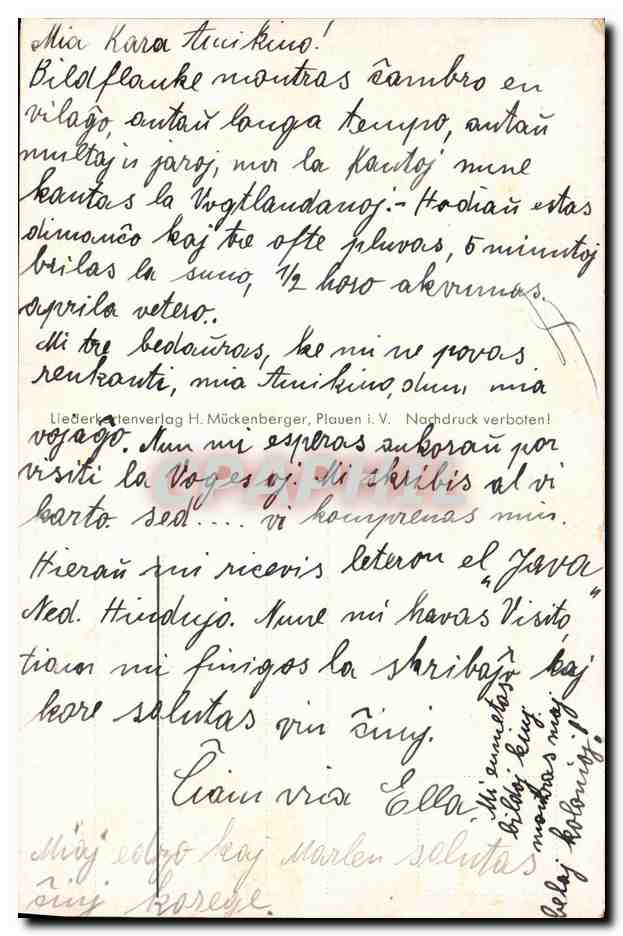 Mia Kara Amikino!
Bildflanke montras ĉambro en
vilaĝo, antaŭ longa tempo, antaŭ
multaj jaroj, nur la Kantoj nune
kantas la Vogtlandanoj.- Hodiaŭ estas
dimanĉo kaj tre ofte pluvas, 5 minutoj
brilas la suno, 1/2 horo akvumas.
aprila vetero..
Mi tre bedaŭras, ke mi ne povas
renkonti, mia Amikino, dum mia
Liederkartenverlag H. Mückenberger, Plauen i. V. Nachdruck verboten!
vojaĝo. Nun mi esperas ankoraŭ por
visiti la Vogesoj. Mi skribis al vi
karto sed .... vi komprenas min.
Hieraŭ mi ricevis leteron el „Java"
Ned. Hindujo. Nune mi havas Visito,
tiam mi finigos la skribaĵo kaj
kore salutas vin ĉiuj.
Ĉiam via Ella.
Mi enmetas
bildoj kiuj
montras niaj
belaj kolonioj!
Miaj edzo kaj Marlen salutas
ĉiuj korege.
CPARAMA